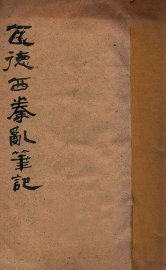 瓦德西拳亂筆記